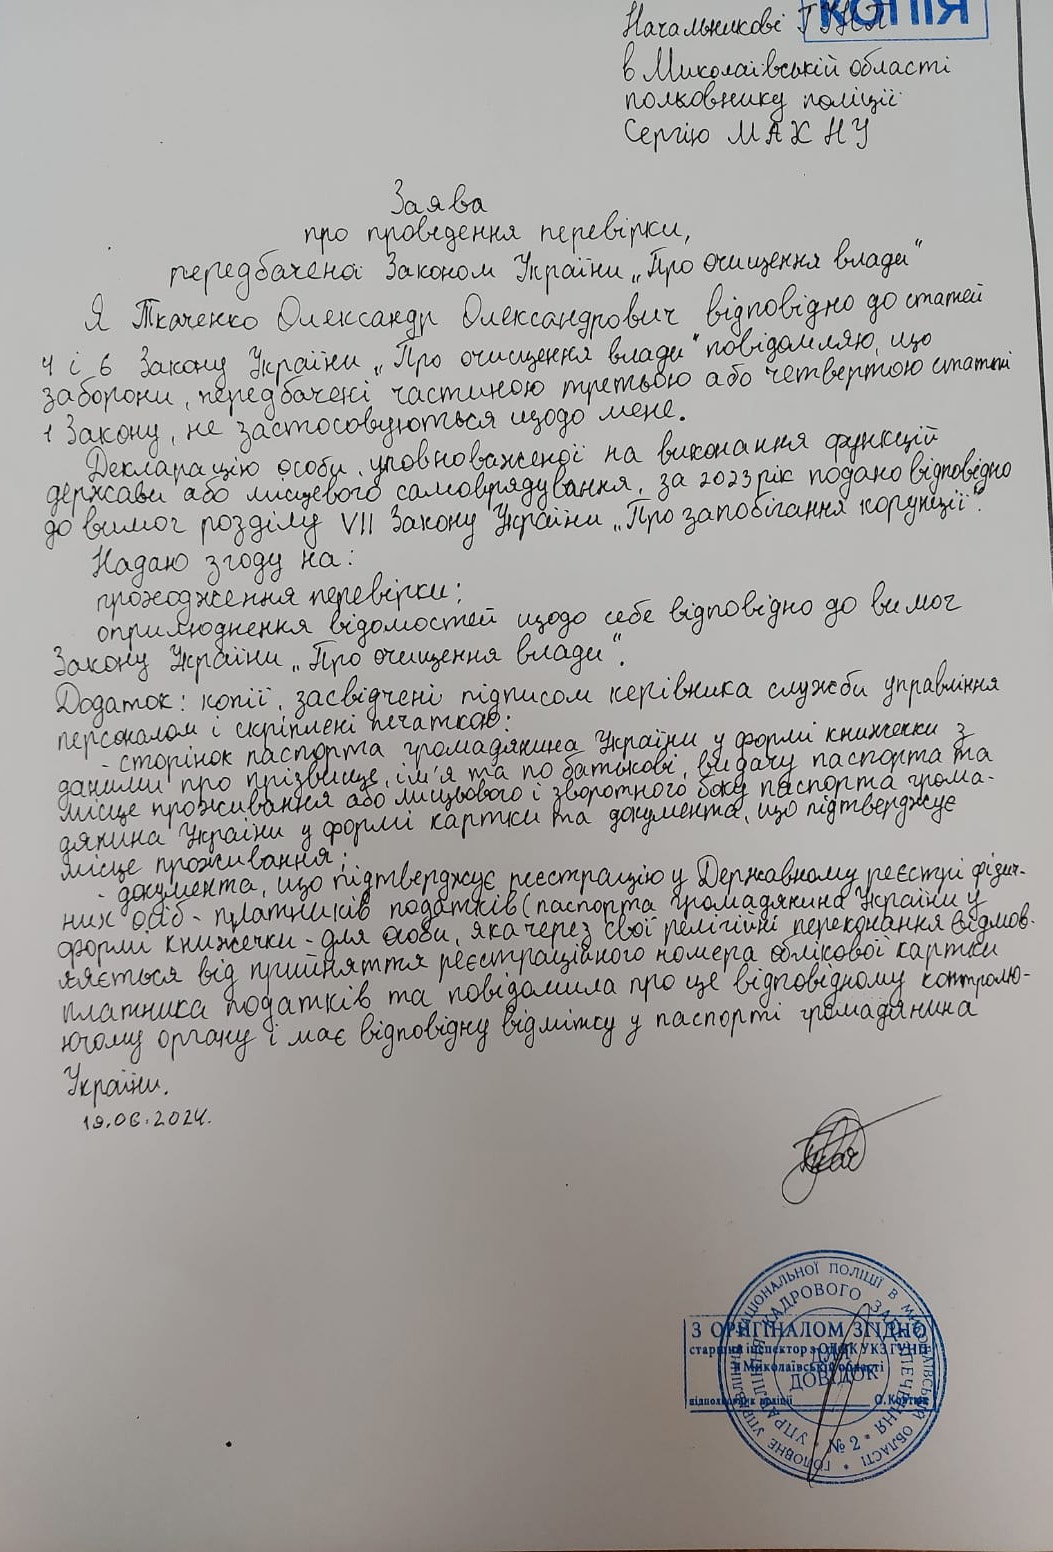 КОПІЯ
Начальникові ГУНП
в Миколаївській області
полковнику поліції
Сергію МАХНУ
Заява
про проведення перевірки,
передбаченої Законом України „Про очищення влади“
Я Ткаченко Олександр Олександрович відповідно до статей
4 і 6 Закону України „Про очищення влади“ повідомляю, що
заборони, передбачені частиною третьою або четвертою статті
1 Закону, не застосовуються щодо мене.
Декларацію особи, уповноваженої на виконання функцій
держави або місцевого самоврядування, за 2023 рік подано відповідно
до вимог розділу VII Закону України „Про запобігання корупції“.
Надаю згоду на:
проходження перевірки;
оприлюднення відомостей щодо себе відповідно до вимог
Закону України „Про очищення влади“.
Додаток: копії, засвідчені підписом керівника служби управління
персоналом і скріплені печаткою:
- сторінок паспорта громадянина України у формі книжечки з
даними про прізвище, ім'я та по батькові, видачу паспорта та
місце проживання або лицьового і зворотного боку паспорта грома-
дянина України у формі картки та документа, що підтверджує
місце проживання;
- документа, що підтверджує реєстрацію у Державному реєстрі фізич-
них осіб - платників податків (паспорта громадянина України у
формі книжечки - для особи, яка через свої релігійні переконання відмов-
ляється від прийняття реєстраційного номера облікової картки
платника податків та повідомила про це відповідному контролю-
ючому органу і має відповідну відмітку у паспорті громадянина
України.
19.06.2024.
З ОРИГІНАЛОМ ЗГІДНО
старший інспектор з ОД УКЗ ГУНП
в Миколаївській області
ДЛЯ
ДОВІДОК
ГОЛОВНЕ УПРАВЛІННЯ НАЦІОНАЛЬНОЇ ПОЛІЦІЇ В МИКОЛАЇВСЬКІЙ ОБЛАСТІ
УПРАВЛІННЯ КАДРОВОГО ЗАБЕЗПЕЧЕННЯ
№ 2